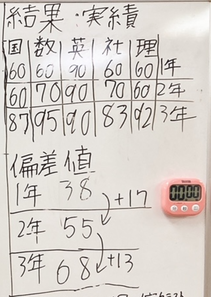 結果:実績
国 数 英 社 理
60 60 90 60 60 1年
60 70 90 70 60 2年
87 95 90 83 92 3年
偏差値
1年 38
+17
2年 55
+13
3年 68
00:00